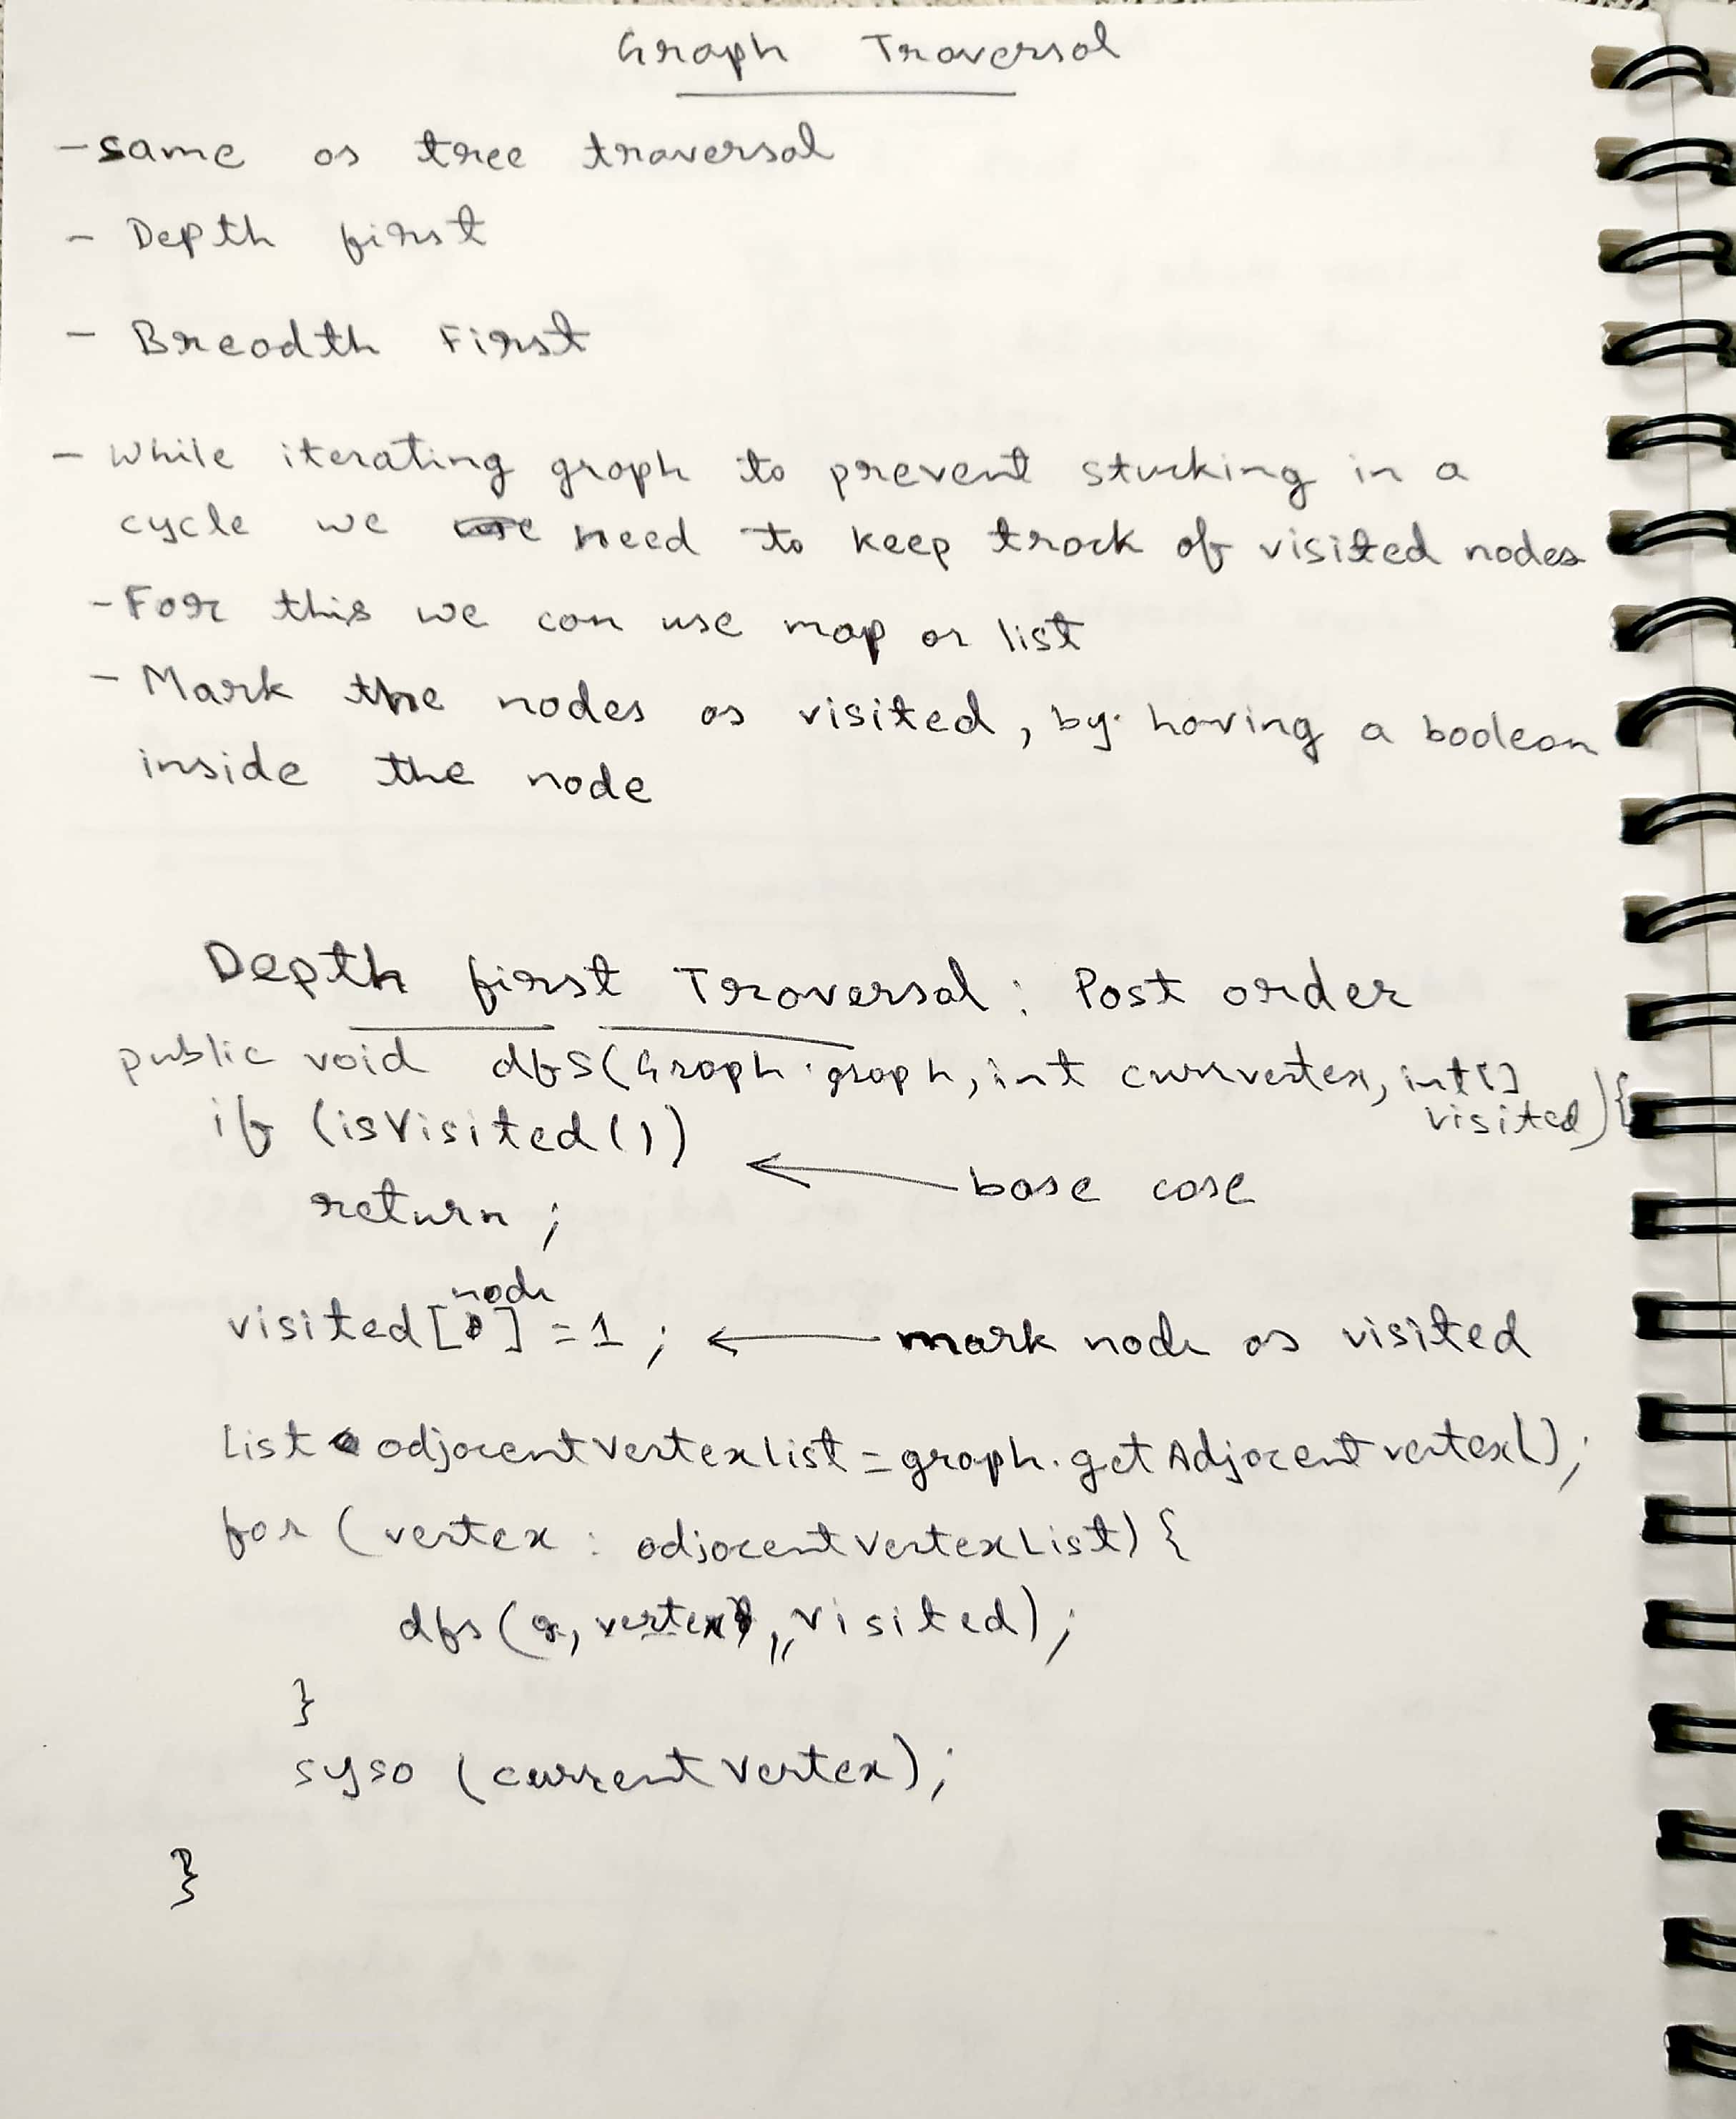 Graph Traversal
- same as tree traversal
- Depth first
- Breadth First
- While iterating graph to prevent stucking in a
cycle we need to keep track of visited nodes
- For this we can use map or list
- Mark the nodes as visited, by having a boolean
inside the node
Depth first Traversal : Post order
public void dfs(Graph graph, int currvertex, int[]
visited){
if (isVisited())
return ;
← base case
node
visited[ ] = 1 ; ← mark node as visited
List adjacentVertexList = graph.getAdjacentvertex();
for (vertex : adjacentVertexList) {
dfs(g, vertex, visited);
}
syso (currentVertex);
}